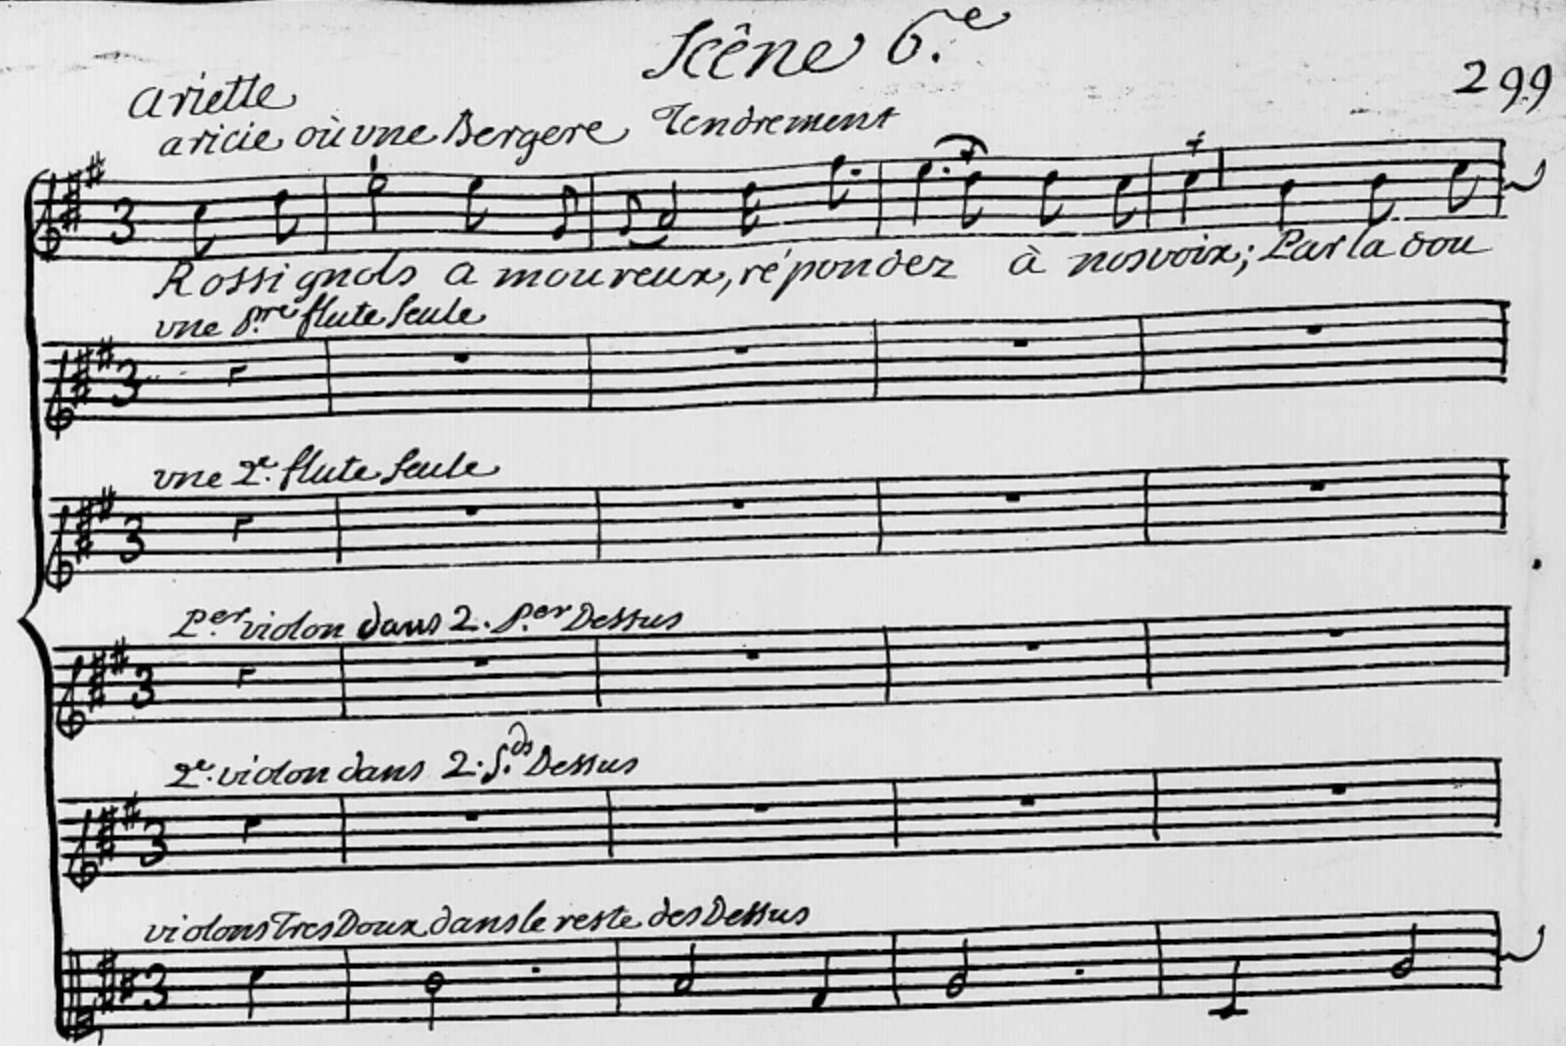 Scêne 6.e
299
ariette
aricie où vne Bergere Tendrement
3
Rossignols amoureux, répondez à nos voix; Par la dou
vne p.re flute seule
3
vne 2e. flute seule
3
P.er violon dans 2. p.er Dessus
3
2e. violon dans 2. s.ds Dessus
3
violons Tres Doux dans le reste des Dessus
3